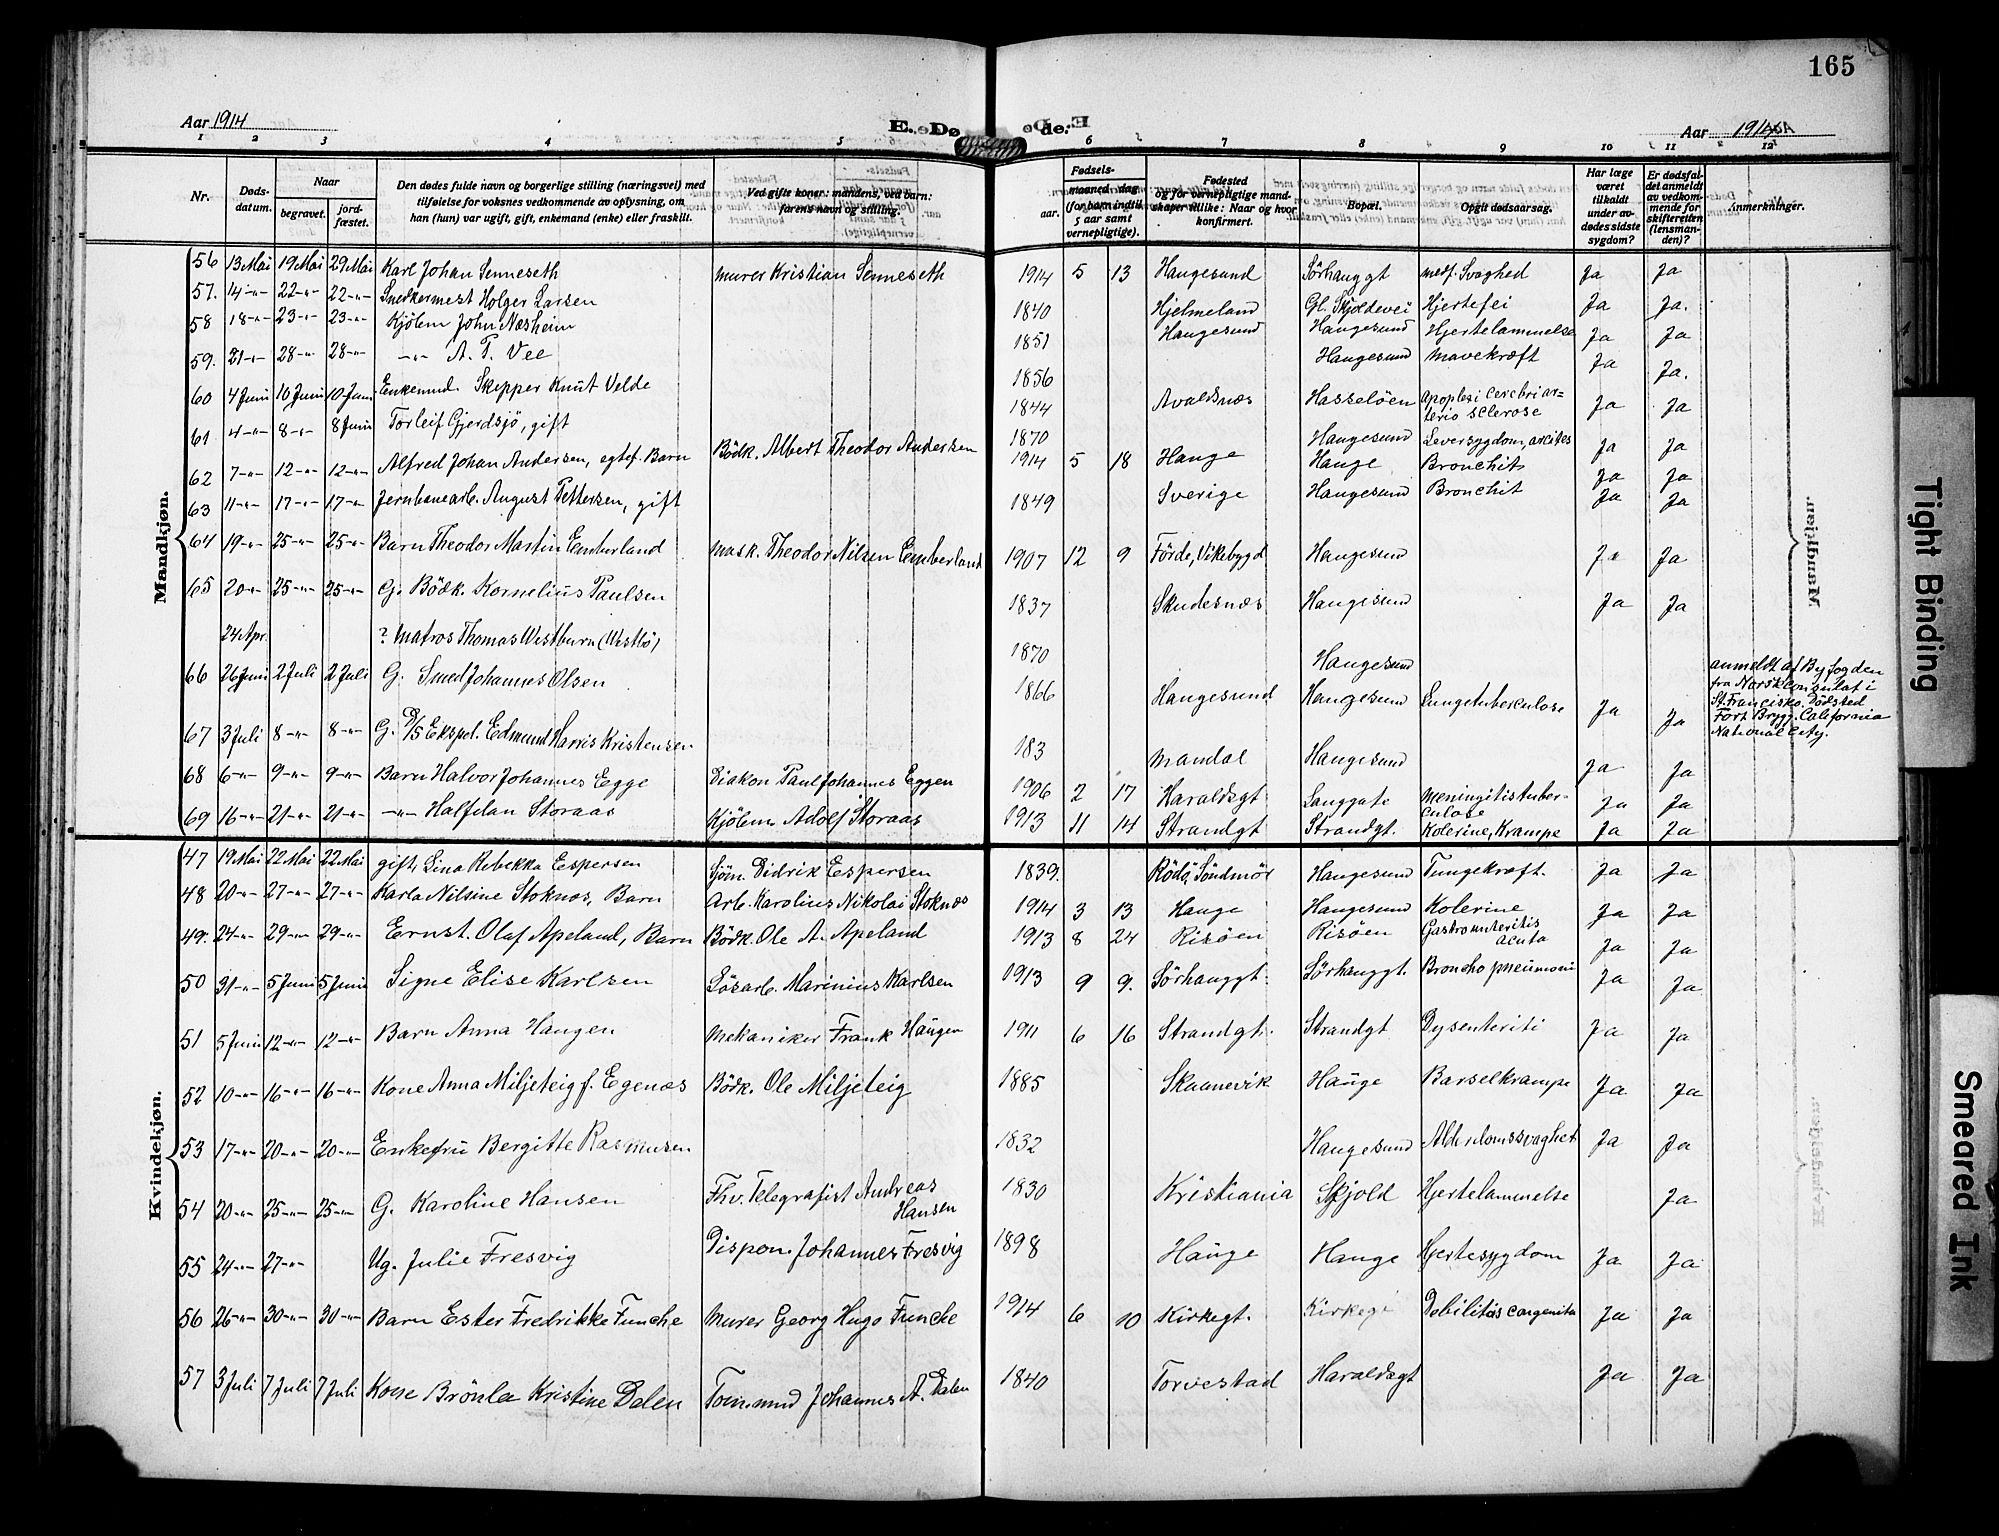 165
Aar 1914 E. Døde: Aar 1914
1 2 3 4 5 6 7 8 9 10 11 12
Nr. Døds-datum. Naar begravet. jord-fæstet. Den dødes fulde navn og borgerlige stilling (næringsvei) med tilføielse for voksnes vedkommende av oplysning, om han (hun) var ugift, gift, enkemand (enke) eller fraskilt. Ved gifte koner: mandens, ved barn: farens navn og stilling. Fødsels- aar. maaned dag (for barn indtil 5 aar samt vernepligtige). Fødested og for vernepligtige mandskaper tillike: Naar og hvor konfirmert. Bopæl. Opgit dødsaarsag. Har læge været tilkaldt under avdødes sidste sygdom? Er dødsfaldet anmeldt av vedkommende for skifteretten (lensmanden)? Anmerkninger.
Mandkjøn.
56 13 Mai 19 Mai 29 Mai Karl Johan Senneseth Murer Kristian Senneseth 1914 5 13 Haugesund Sörhauggt medf. Svaghed Ja Ja
57. 14 -"- 22 -"- 22 -"- Snedkermest Holger Larsen 1840 Hjelmeland Gl. Skjoldevei Hjertefei Ja Ja.
58 18 -"- 23 -"- 23 -"- Kjölem John Næsheim 1851 Haugesund Haugesund Hjertelammelse Ja Ja
59. 21 -"- 28 -"- 28 -"- -"- A. T. Vee 1856 Haugesund Mavekræft Ja Ja.
60 4 Juni 10 Juni 10 Juni Enkemd. Skipper Knut Velde 1844 Avaldsnes Hasselöen Apoplexi cerebri arterio sclerose Ja Ja
61 4 -"- 8 -"- 8 Juni Torleif Gjerdsjö, gift 1870 Haugesund Leversygdom, ascites Ja Ja
62 7 -"- 12 -"- 12 -"- Alfred Johan Andersen, egtef. Barn Bödk. Albert Theodor Andersen 1914 5 18 Hauge Hauge Bronchit Ja Ja
63 11 -"- 17 -"- 17 -"- Jernbanearb. August Pettersen, gift 1849 Sverige Haugesund Bronchit Ja Ja
64 19 -"- 25 -"- 25 -"- Barn Theodor Martin Emberland Mask. Theodor Nilsen Emberland 1907 12 9 Förde, Vikebygd Haugesund Ja Ja
65 20 -"- 25 -"- 25 -"- G. Bödk. Kornelius Paulsen 1837 Skudesnæs Haugesund Ja Ja
24 Apr. ? Matros Thomas Westburn (Westbö) 1870 Haugesund anmeldt af Byfogden fra Norsk Consulat i St. Francisko. Dödsted Fort Brygg. California National City.
66 26 Juni 2 Juli 2 Juli G. Smed Johannes Olsen 1866 Haugesund Haugesund Lungetuberculose Ja Ja
67 3 Juli 8 -"- 8 -"- G. D/S Ekspd. Edmund Harris Kristensen 183 Mandal Haugesund Ja Ja
68 6 -"- 9 -"- 9 -"- Barn Halvor Johannes Egge Diakon Paul Johannes Eggen 1906 2 17 Haraldsgt Langgate Meningitis tuberculose Ja Ja
69 16 -"- 21 -"- 21 -"- -"- Halfdan Storaas Kjölem Adolf Storaas 1913 11 14 Strandgt Strandgt. Kolerine, Krampe Ja Ja
Kvindekjøn.
47 19 Mai 22 Mai 22 Mai gift, Lina Rebekka Espersen Sjöm. Didrik Espersen 1839. Rödö, Söndmör Haugesund Tungekræft. Ja Ja
48 20 -"- 27 -"- 27 -"- Karla Nilsine Stoknæs, Barn Arb. Karolius Nikolai Stoknæs 1914 3 13 Hauge Haugesund Kolerine Ja Ja
49. 24 -"- 29 -"- 29 -"- Ernst. Olaf Apeland, Barn Bödk. Ole A. Apeland 1913 8 24 Risöen Risöen Gastroenteritis acuta Ja Ja
50 31 -"- 5 Juni 5 Juni Signe Elise Karlsen Lösarb. Marinius Karlsen 1913 9 9. Sörhauggt. Sörhauggt. Bronchopneumoni Ja Ja
51 5 Juni 12 -"- 12 -"- Barn Anna Haugen Mekaniker Frank Haugen 1911 6 16 Strandgt. Strandgt Dysenteriti Ja Ja
52 10 -"- 16 -"- 16 -"- Kone Anna Miljeteig f. Egenæs Bödk. Ole Miljeteig 1885 Skaanevik Hauge Barselkrampe Ja Ja
53 17 -"- 20 -"- 20 -"- Enkefru Bergitte Rasmusen 1832 Haugesund Alderdomssvaghet Ja Ja
54 20 -"- 25 -"- 25 -"- G. Karoline Hansen Fhv. Telegrafist Andreas Hansen 1830 Kristiania Skjold Hjertelammelse Ja
55 24 -"- 27 -"- Ug. Julie Fresvig Dispon. Johannes Fresvig 1898 Hauge Hauge Hjertesygdom Ja Ja
56 26 -"- 30 -"- 30 -"- Barn Ester Fredrikke Funche Murer Georg Hugo Funche 1914 6 10 Kirkegt. Kirkegt Debilitas congenita Ja Ja
57 3 Juli 7 Juli 7 Juli Kone Brönla Kristine Dalen Tom.md Johannes A. Dalen 1840 Torvestad Haraldsgt Ja Ja
Tight Binding
Smeared Ink